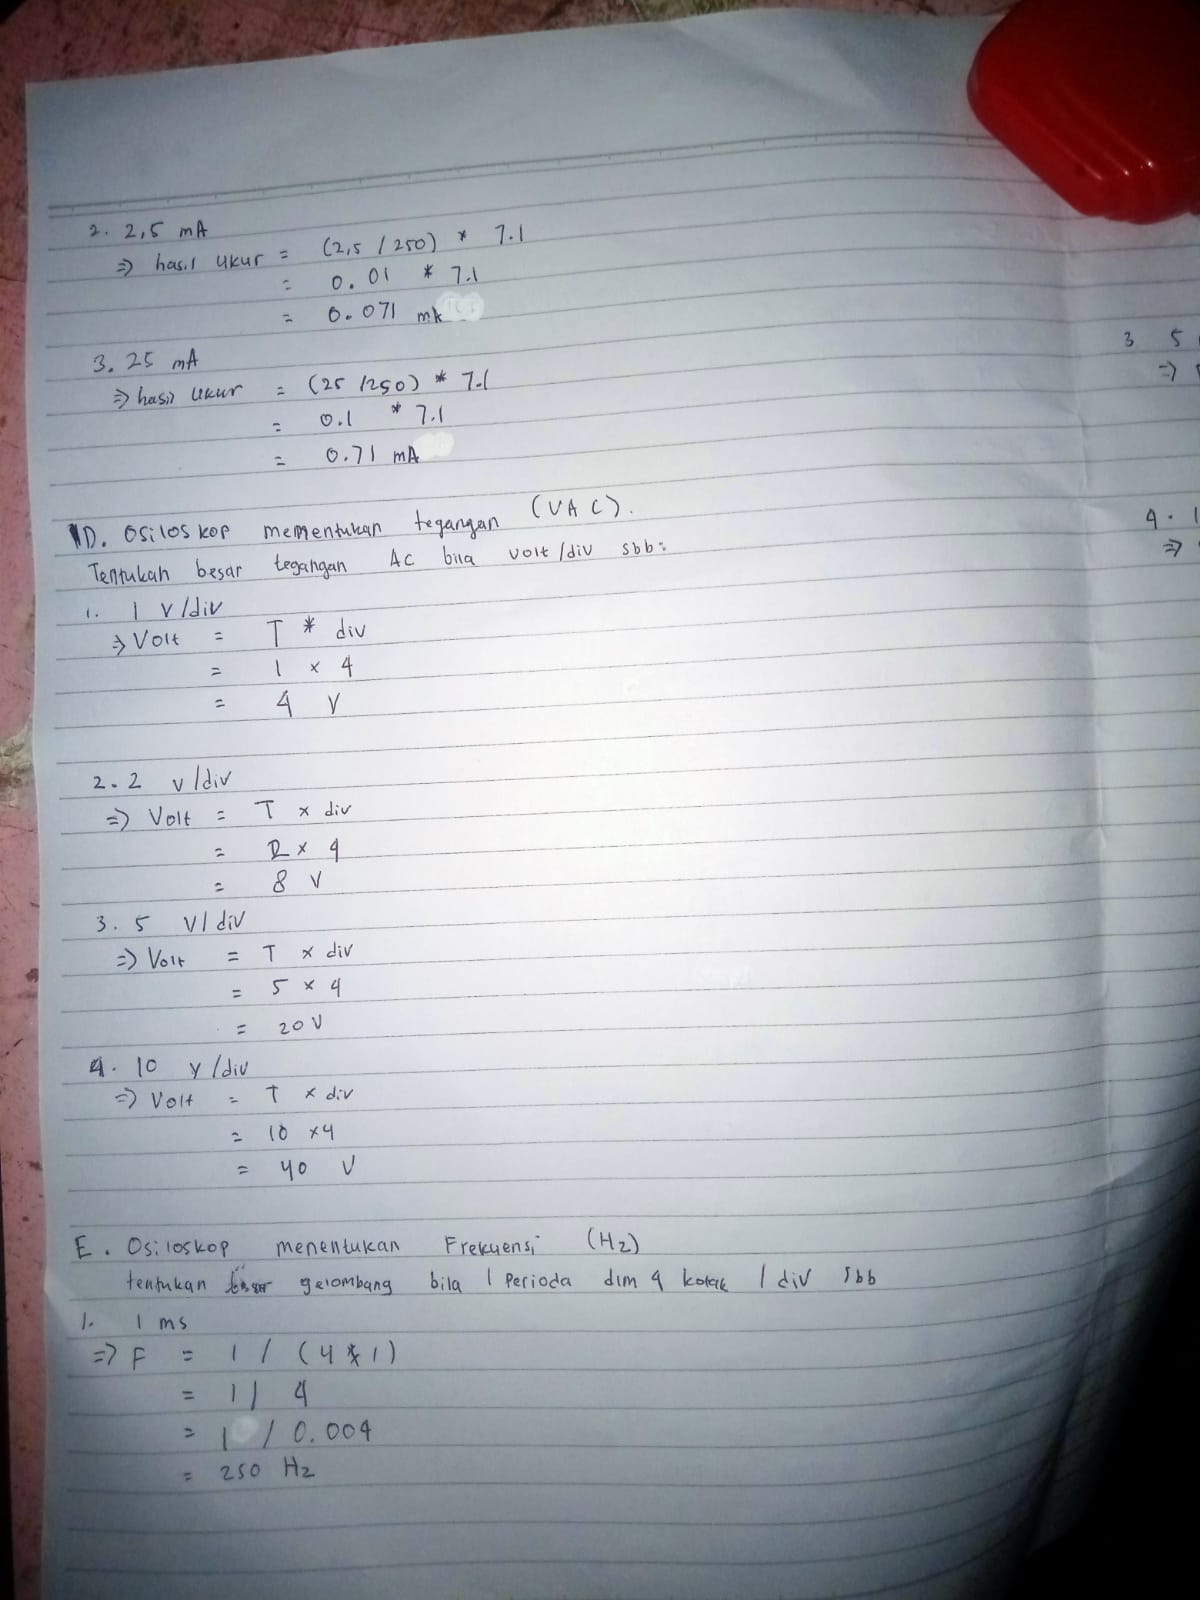 2. 2,5 mA
=> hasil ukur = (2,5 / 250) * 7.1
= 0.01 * 7.1
= 0.071 mA
3. 25 mA
=> hasil ukur = (25 /250) * 7.1
= 0.1 * 7.1
= 0.71 mA
D. Osiloskop mementukan tegangan (VAC).
Tentukan besar tegangan AC bila volt /div sbb:
1. 1 v/div
=> Volt = T * div
= 1 x 4
= 4 V
2. 2 v/div
=> Volt = T x div
= 2 x 4
= 8 V
3. 5 V/div
=> Volt = T x div
= 5 x 4
= 20 V
4. 10 v/div
=> Volt = T x div
= 10 x4
= 40 V
E. Osiloskop menentukan Frekuensi (Hz)
tentukan gelombang bila 1 Perioda dlm 4 kotak / div sbb
1. 1 ms
=> F = 1 / (4 * 1)
= 1 / 4
= 1 / 0.004
= 250 Hz
3 5
=>
4. 1
=>